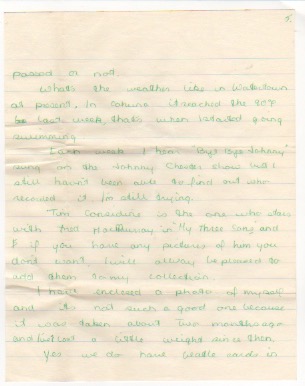 5.
passed or not.
Whats the weather like in Watertown
at present. In it reached the 80°F
last week, thats when I started going
swimming.
week I hear "Bye Bye Johnny"
sung on the Johnny show but I
still havn't been able to find out who
recored it I'm still trying.
Tim Considine is the one who stars
with Fred MacMurray in "My Three Sons" and
if you have any pictures of him you
dont want, I will always be pleased to
add them to my collection.
I have enclosed a photo of myself
and its not such a good one because
it was taken about two months ago
and I've lost a little weight since then.
Yes we do have beatle cards in